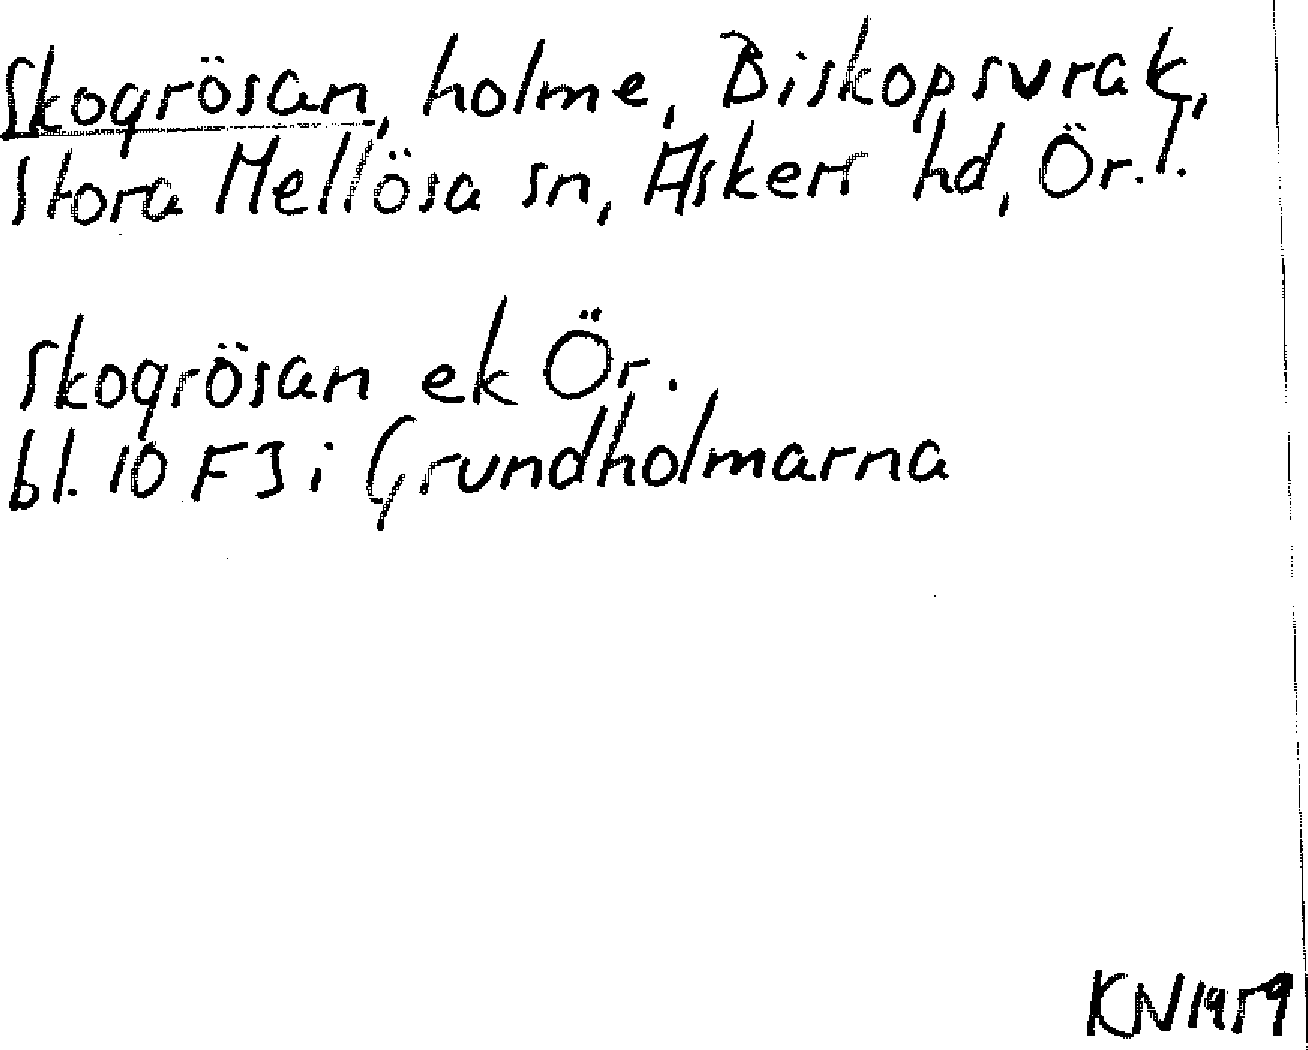 Skogrösan, holme, Biskopsvrak,
Stora Mellösa sn, Askers hd, Ör. l.
Skogrösan ek Ör.
bl. 10 F3 i Grundholmarna
KN 1959